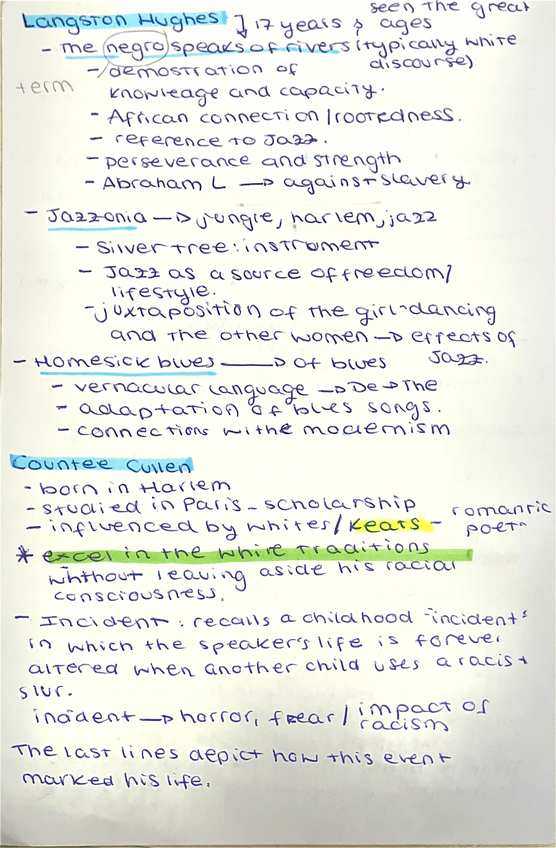 seen the great
Langston Hughes 17 years & ages
- The negro speaks of rivers (typically white
discourse)
term
- demostration of
knowleage and capacity.
- African connection/rootedness.
- reference to Jazz.
- perseverance and strength
- Abraham L → against slavery
- Jazzonia → jungle, harlem, jazz
- Silver tree: instrument
- Jazz as a source of freedom/
lifestyle.
- juxtaposition of the girl-dancing
and the other women → effects of
Jazz.
- Homesick blues → Of blues
- vernacular language → De → The
- adaptation of blues songs.
- connections withe modernism
Countee Cullen
- born in Harlem
- studied in Paris - scholarship
- influenced by whites/Keats - romantic
poet
* excel in the white traditions
without leaving aside his racial
consciousness.
- Incident: recalls a childhood "incident"
in which the speaker's life is forever
altered when another child uses a racist
slur.
incident → horror, fear/impact of
racism
The last lines depict how this event
marked his life.